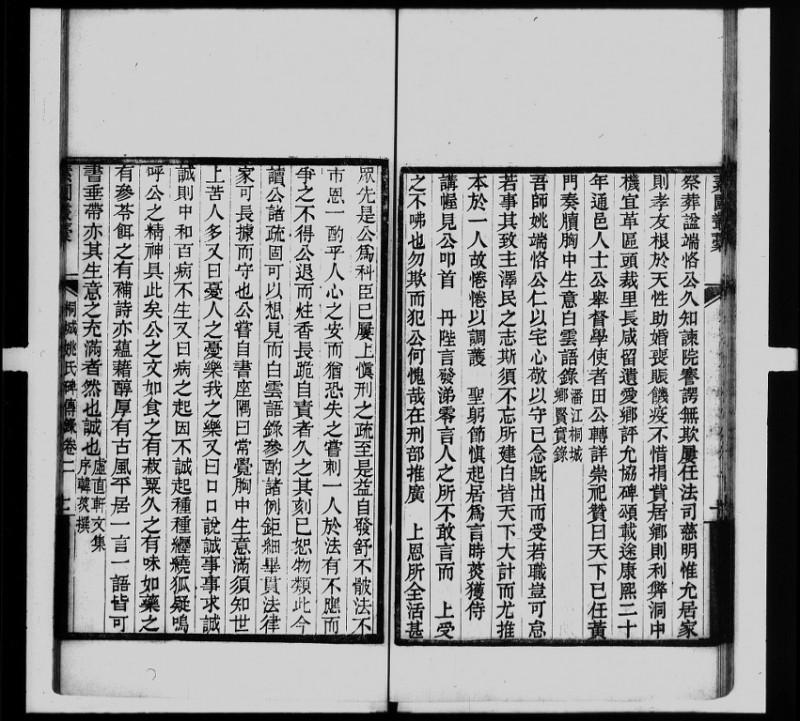 祭葬諡端恪公久知諫院謇諤無欺屢任法司慈明惟允居家
則孝友根於天性助婚喪賑饑疫不惜捐貲居鄉則利弊洞中
機宜革區頭裁里長咸留遺愛鄉評允協碑頌載途康熙二十
年通邑人士公舉督學使者田公轉詳崇祀贊曰天下已任黃
門奏牘胸中生意白雲語錄潘江桐城
鄉賢實錄
吾師姚端恪公仁以宅心敬以守已念旣出而受若職豈可怠
若事其致主澤民之志斯須不忘所建白皆天下大計而尤推
本於一人故惓惓以調護　聖躬節愼起居爲言時菼獲侍
講幄見公叩首　丹陛言發涕零言人之所不敢言而　上受
之不咈也勿欺而犯公何愧哉在刑部推廣　上恩所全活甚
眾先是公爲科臣已屢上愼刑之疏至是益自發舒不骫法不
市恩一酌乎人心之安而猶恐失之嘗刺一人於法有不應而
爭之不得公退而炷香長跪自責者久之其刻已恕物類此今
讀公諸疏固可以想見而白雲語錄參酌諸例鉅細畢貫法律
家可長據而守也公嘗自書座隅曰常覺胸中生意滿須知世
上苦人多又曰憂人之憂樂我之樂又曰口口說誠事事求誠
誠則中和百病不生又曰病之起因不誠起種種纒繞狐疑嗚
呼公之精神具此矣公之文如食之有菽粟久之有味如藥之
有參苓餌之有補詩亦蘊藉醇厚有古風平居一言一語皆可
書垂帶亦其生意之充滿者然也誠也虛直軒文集
序韓菼撰
桐城姚氏碑傳錄卷二